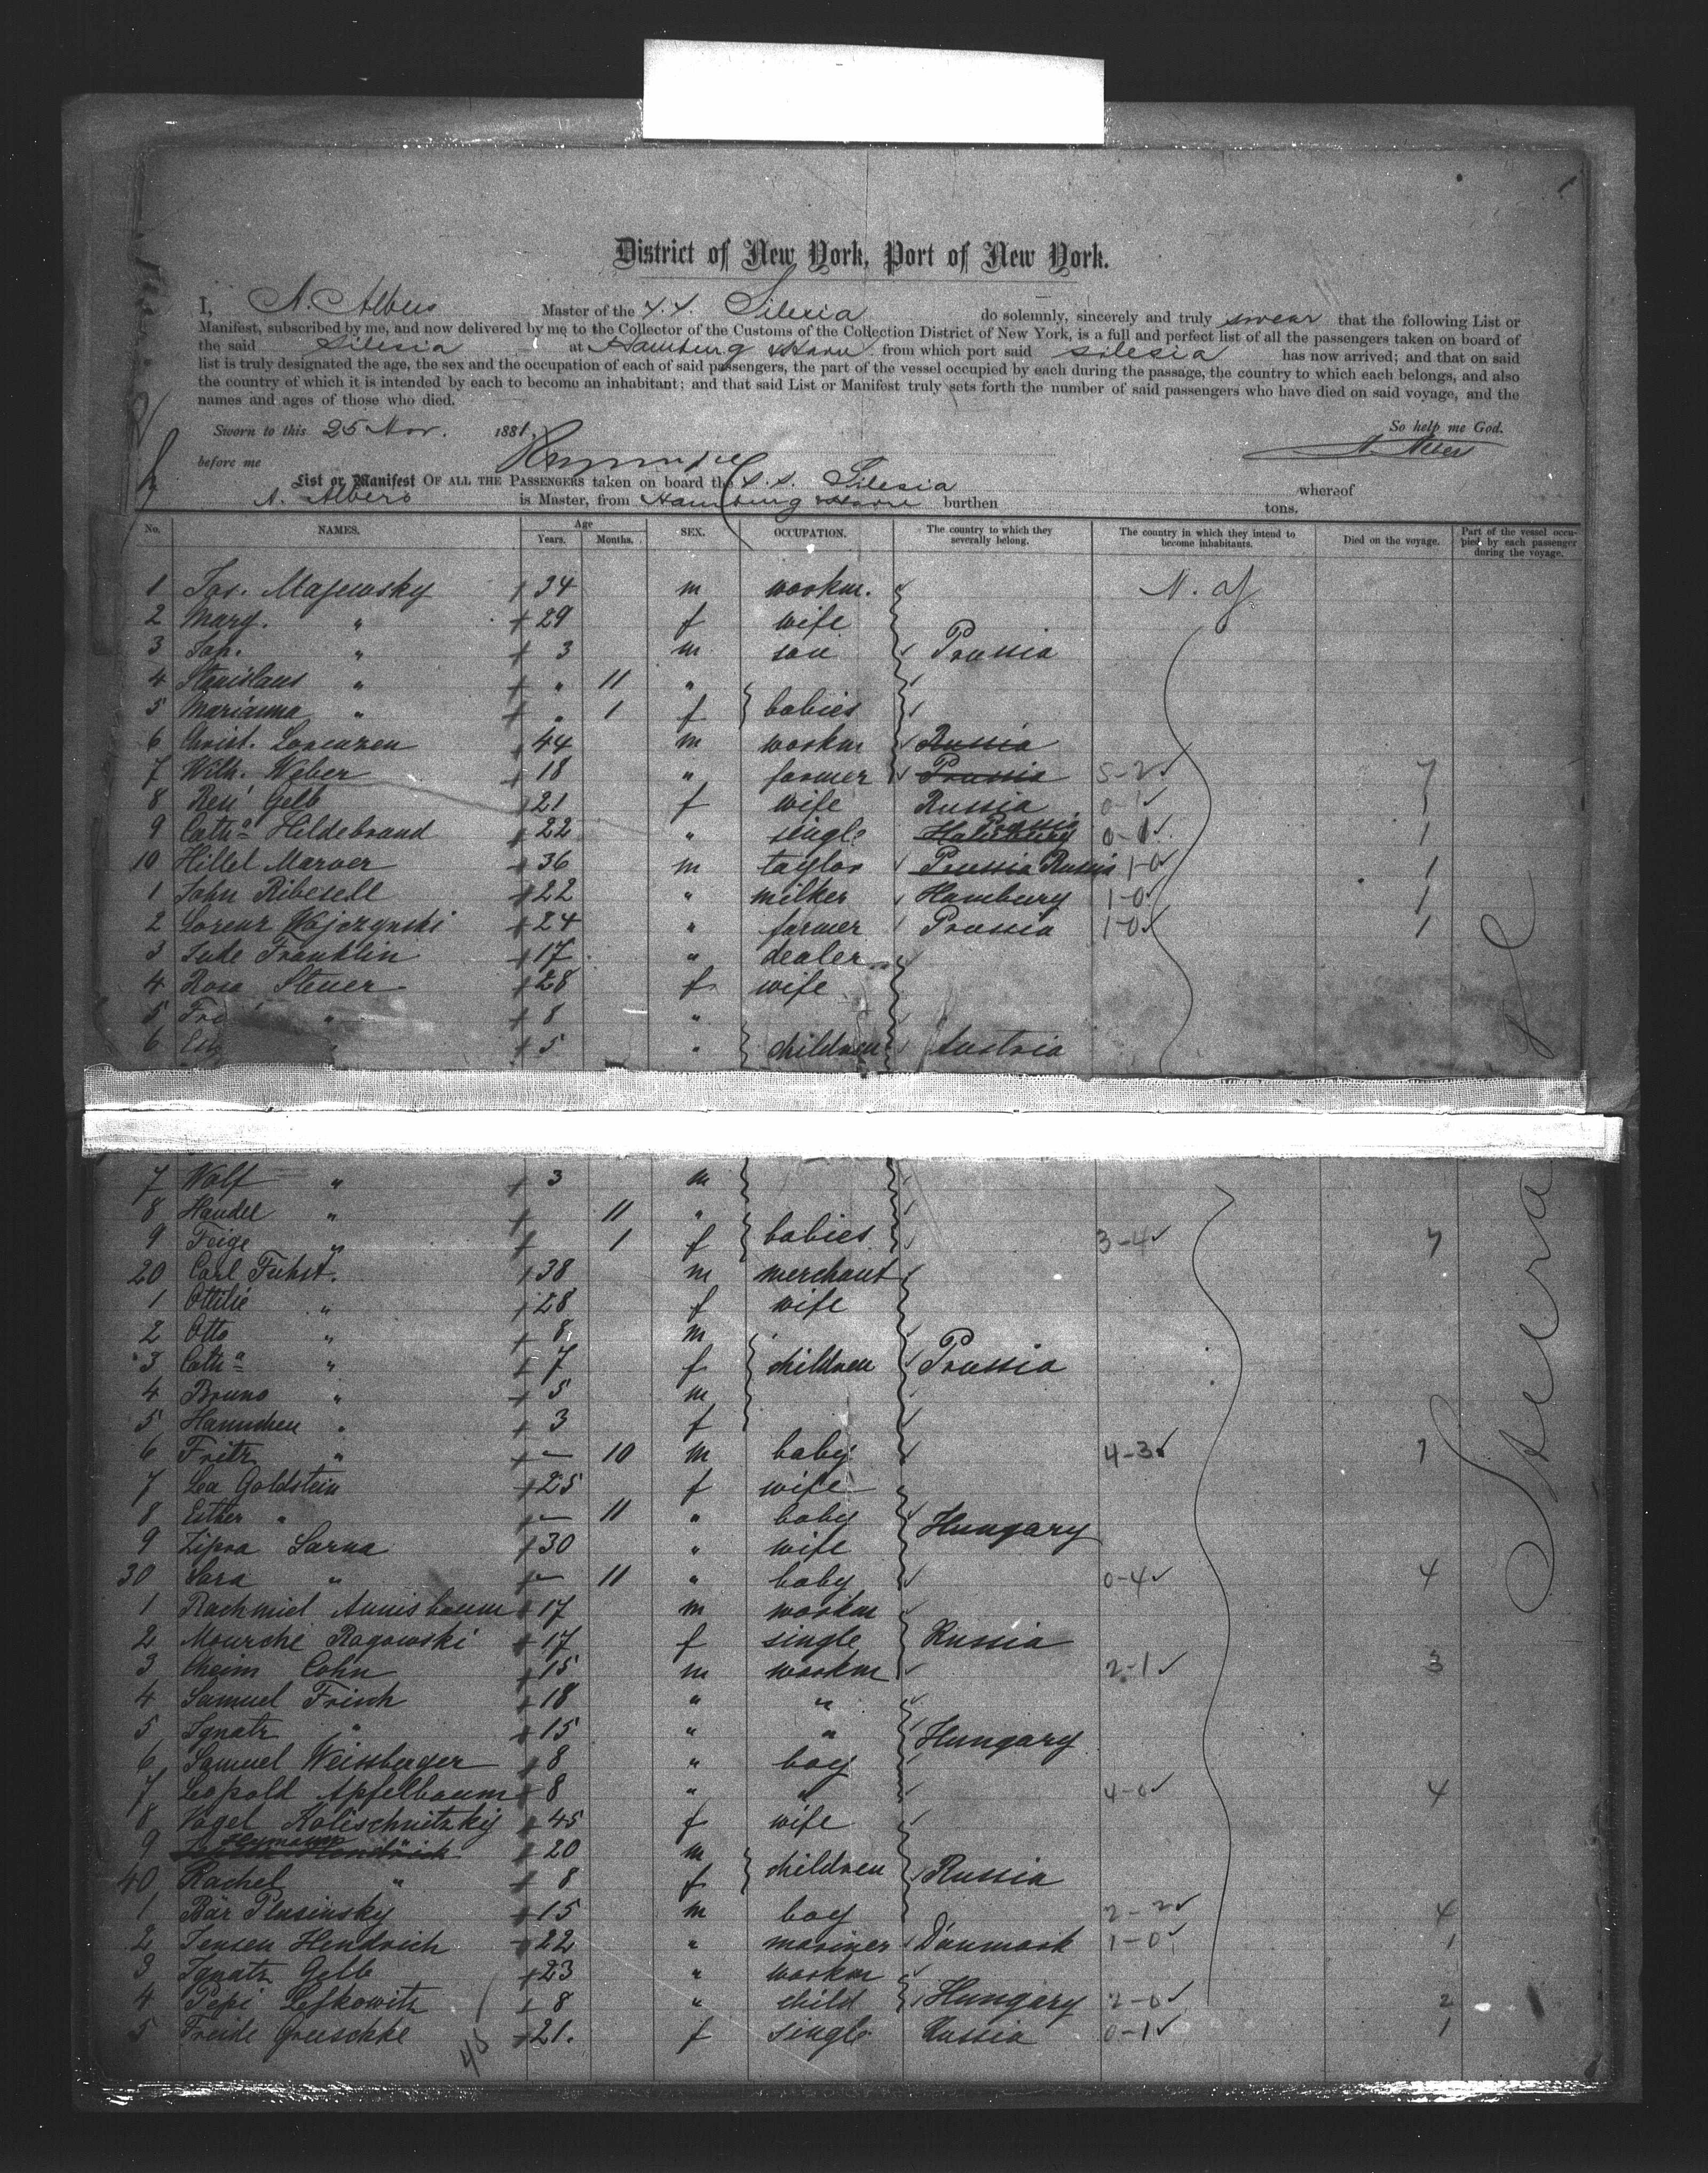 District of New York, Port of New York.
I, A. Albers Master of the S.S. Silesia do solemnly, sincerely and truly swear that the following List or
Manifest, subscribed by me, and now delivered by me to the Collector of the Customs of the Collection District of New York, is a full and perfect list of all the passengers taken on board of
the said Silesia at Hamburg & Havre from which port said Silesia has now arrived; and that on said
list is truly designated the age, the sex and the occupation of each of said passengers, the part of the vessel occupied by each during the passage, the country to which each belongs, and also
the country of which it is intended by each to become an inhabitant; and that said List or Manifest truly sets forth the number of said passengers who have died on said voyage, and the
names and ages of those who died.
Sworn to this 25 Nov. 1881, So help me God.
before me A. Albers
List or Manifest OF ALL THE PASSENGERS taken on board the S.S. Silesia whereof
A. Albers is Master, from Hamburg & Havre burthen tons.
No. NAMES. Age Years. Months. SEX. OCCUPATION. The country to which they severally belong. The country in which they intend to become inhabitants. Died on the voyage. Part of the vessel occupied by each passenger during the voyage.
1 Jos. Majewsky 34 m workm. N. Y.
2 Marg. " 29 f wife
3 Jos. " 3 m son Prussia
4 Stanislaus " " 11 "
5 Marianna " " 1 f babies
6 Christ. Lorenzen 44 m workm Russia
7 Wilh. Weber 18 " farmer Prussia 5-2 7
8 Resi Gelb 21 f wife Russia 0-1 1
9 Cath^a Hildebrand 22 " single Prussia 0-1 1
10 Hillel Marver 36 m taylor Prussia Russia 1-0 1
1 John Ribesell 22 " milker Hamburg 1-0 1
2 Lorenz Wojczynski 24 " farmer Prussia 1-0 1
3 Jude Franklin 17 " dealer
4 Rosa Steuer 28 f wife
5 " 8 "
6 " 5 " children Austria
7 Wolf " 3 m
8 Handel " 11 "
9 Feige " 1 f babies 3-4 7
20 Carl Fuhst. 38 m merchant
1 Ottilie " 28 f wife
2 Otto " 8 m
3 Cath^a " 7 f children Prussia
4 Bruno " 5 m
5 Hannchen " 3 f
6 Fritz " - 10 m baby 4-3 7
7 Lea Goldstein 25 f wife
8 Esther " - 11 " baby Hungary
9 Zipra Sarna 30 " wife
30 Sara " - 11 " baby 0-4 4
1 Rachmiel Annisbaum 17 m workm
2 Mourche Rogowski 17 f single Russia
3 Cheim Cohn 15 m workm 2-1 3
4 Samuel Frisch 18 " "
5 Ignatz " 15 " " Hungary
6 Samuel Weissberger 8 " boy
7 Leopold Apfelbaum 8 " " 4-0 4
8 Vogel Kolischnitzky 45 f wife
9 Heymann 20 m
40 Rachel " 8 f children Russia
1 Bär Plusinsky 15 m boy 2-2 4
2 Jensen Hendrich 22 " mariner Danmark 1-0 1
3 Ignatz Gelb 23 " workm
4 Pepi Lefkowitz 8 " child Hungary 2-0 2
5 Freide Greeschke 21. f single Russia 0-1 1
Steerage